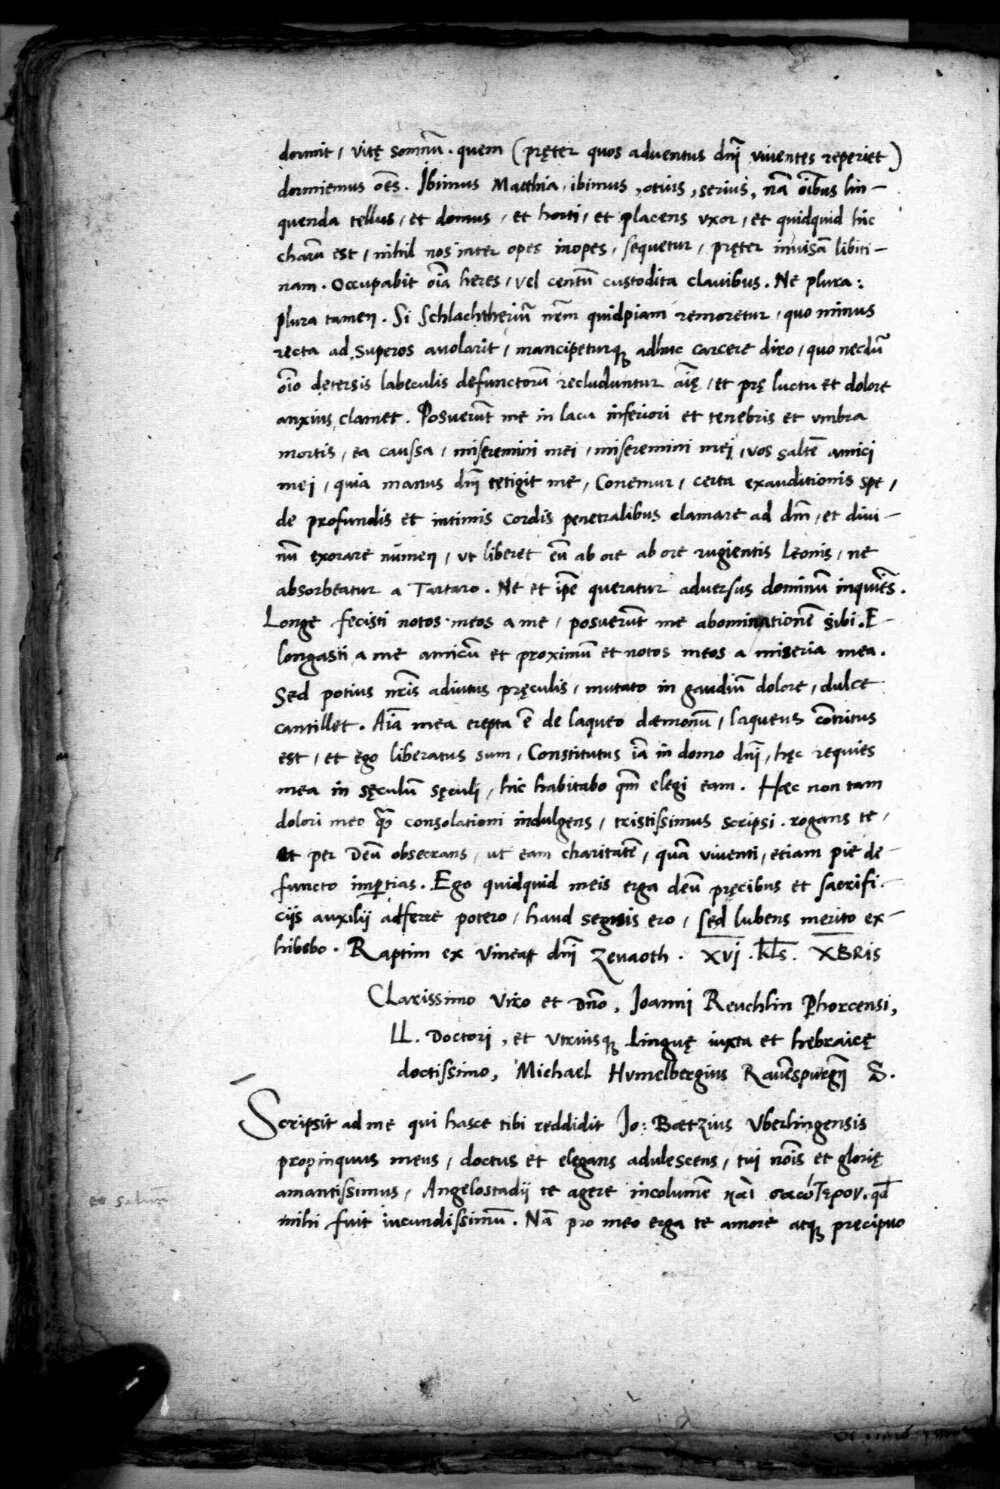 dormit, vitę somnū. quem (pręter quos aduentus dn̄i viuentes reperiet)
dormiemus oēs. Ibimus Matthia, ibimus, ocius, serius, nā oībus lin-
quenda tellus, et domus, et horti, et placens vxor, et quidquid hic
charū est, nihil nos inter opes inopes, sequetur, pręter inuisā libiti-
nam. Occupabit oīa heres, vel centū custodita clauibus. Ne plura:
plura tamen. Si Schlachtheriū nr̄m quidpiam remoretur, quo minus
recta ad superos auolarit, mancipeturqꝫ adhuc carcere diro, quo necdū
oīo detersis labeculis defunctorū recluduntur aīę, et prę luctu et dolore
anxius clamet. Posuerūt me in lacu inferiori et tenebris et vmbra
mortis, ea caussa, miseremini mei, miseremini mei, vos saltē amici
mei, quia manus dn̄i tetigit me, Conemur, certa exauditionis spe,
de profundis et intimis cordis penetralibus clamare ad dn̄m, et diui-
nū exorare numen, vt liberet eū ab ore ab ore rugientis Leonis, ne
absorbeatur a Tartaro. Ne et ip̄e queratur aduersus dominū inquiēs.
Longe fecisti notos meos a me, posuerūt me abominationē sibi. E-
longasti a me amicū et proximū et notos meos a miseria mea.
Sed potius nr̄is adiutus pręculis, mutato in gaudiū dolore, dulce
cantillet. Aīa mea erepta ē de laqueo dæmonū, laqueus cōtritus
est, et ego liberatus sum, Constitutus iā in domo dn̄i, hęc requies
mea in sęculū sęculi, hic habitabo qm̄ elegi eam. Hæc non tam
dolori meo qꝫ̄ consolationi indulgens, tristissimus scripsi. rogans te,
et per Deū obsecrans, ut eam charitatē, quā viuenti, etiam pie de-
functo imꝑtias. Ego quidquid meis erga deū pręcibus et sacrifi-
cijs auxilij adferre potero, haud segnis ero, sed lubens merito ex-
hibebo. Raptim ex vineat dn̄i Zeuaoth. XVI. kl̄s. XBRIS
Clarissimo viro et Dn̄o, Joanni Reuchlin Phorcensi,
LL. Doctori, et vtriusqꝫ Linguę iuxta et hebraicę
doctissimo, Michael Hvmelbergius Rauēspurgn̄ S.
Scripsit ad me qui hasce tibi reddidit Jo: Bætzius Vberlingensis
propinquus meus, doctus et elegans adulescens, tui nōis et glorię
et saluū
amantissimus, Angelostadij te agere incolumē καὶ σαώτερον. qd̄
mihi fuit iucundissimū. Nā pro meo erga te amore atqꝫ pręcipuo